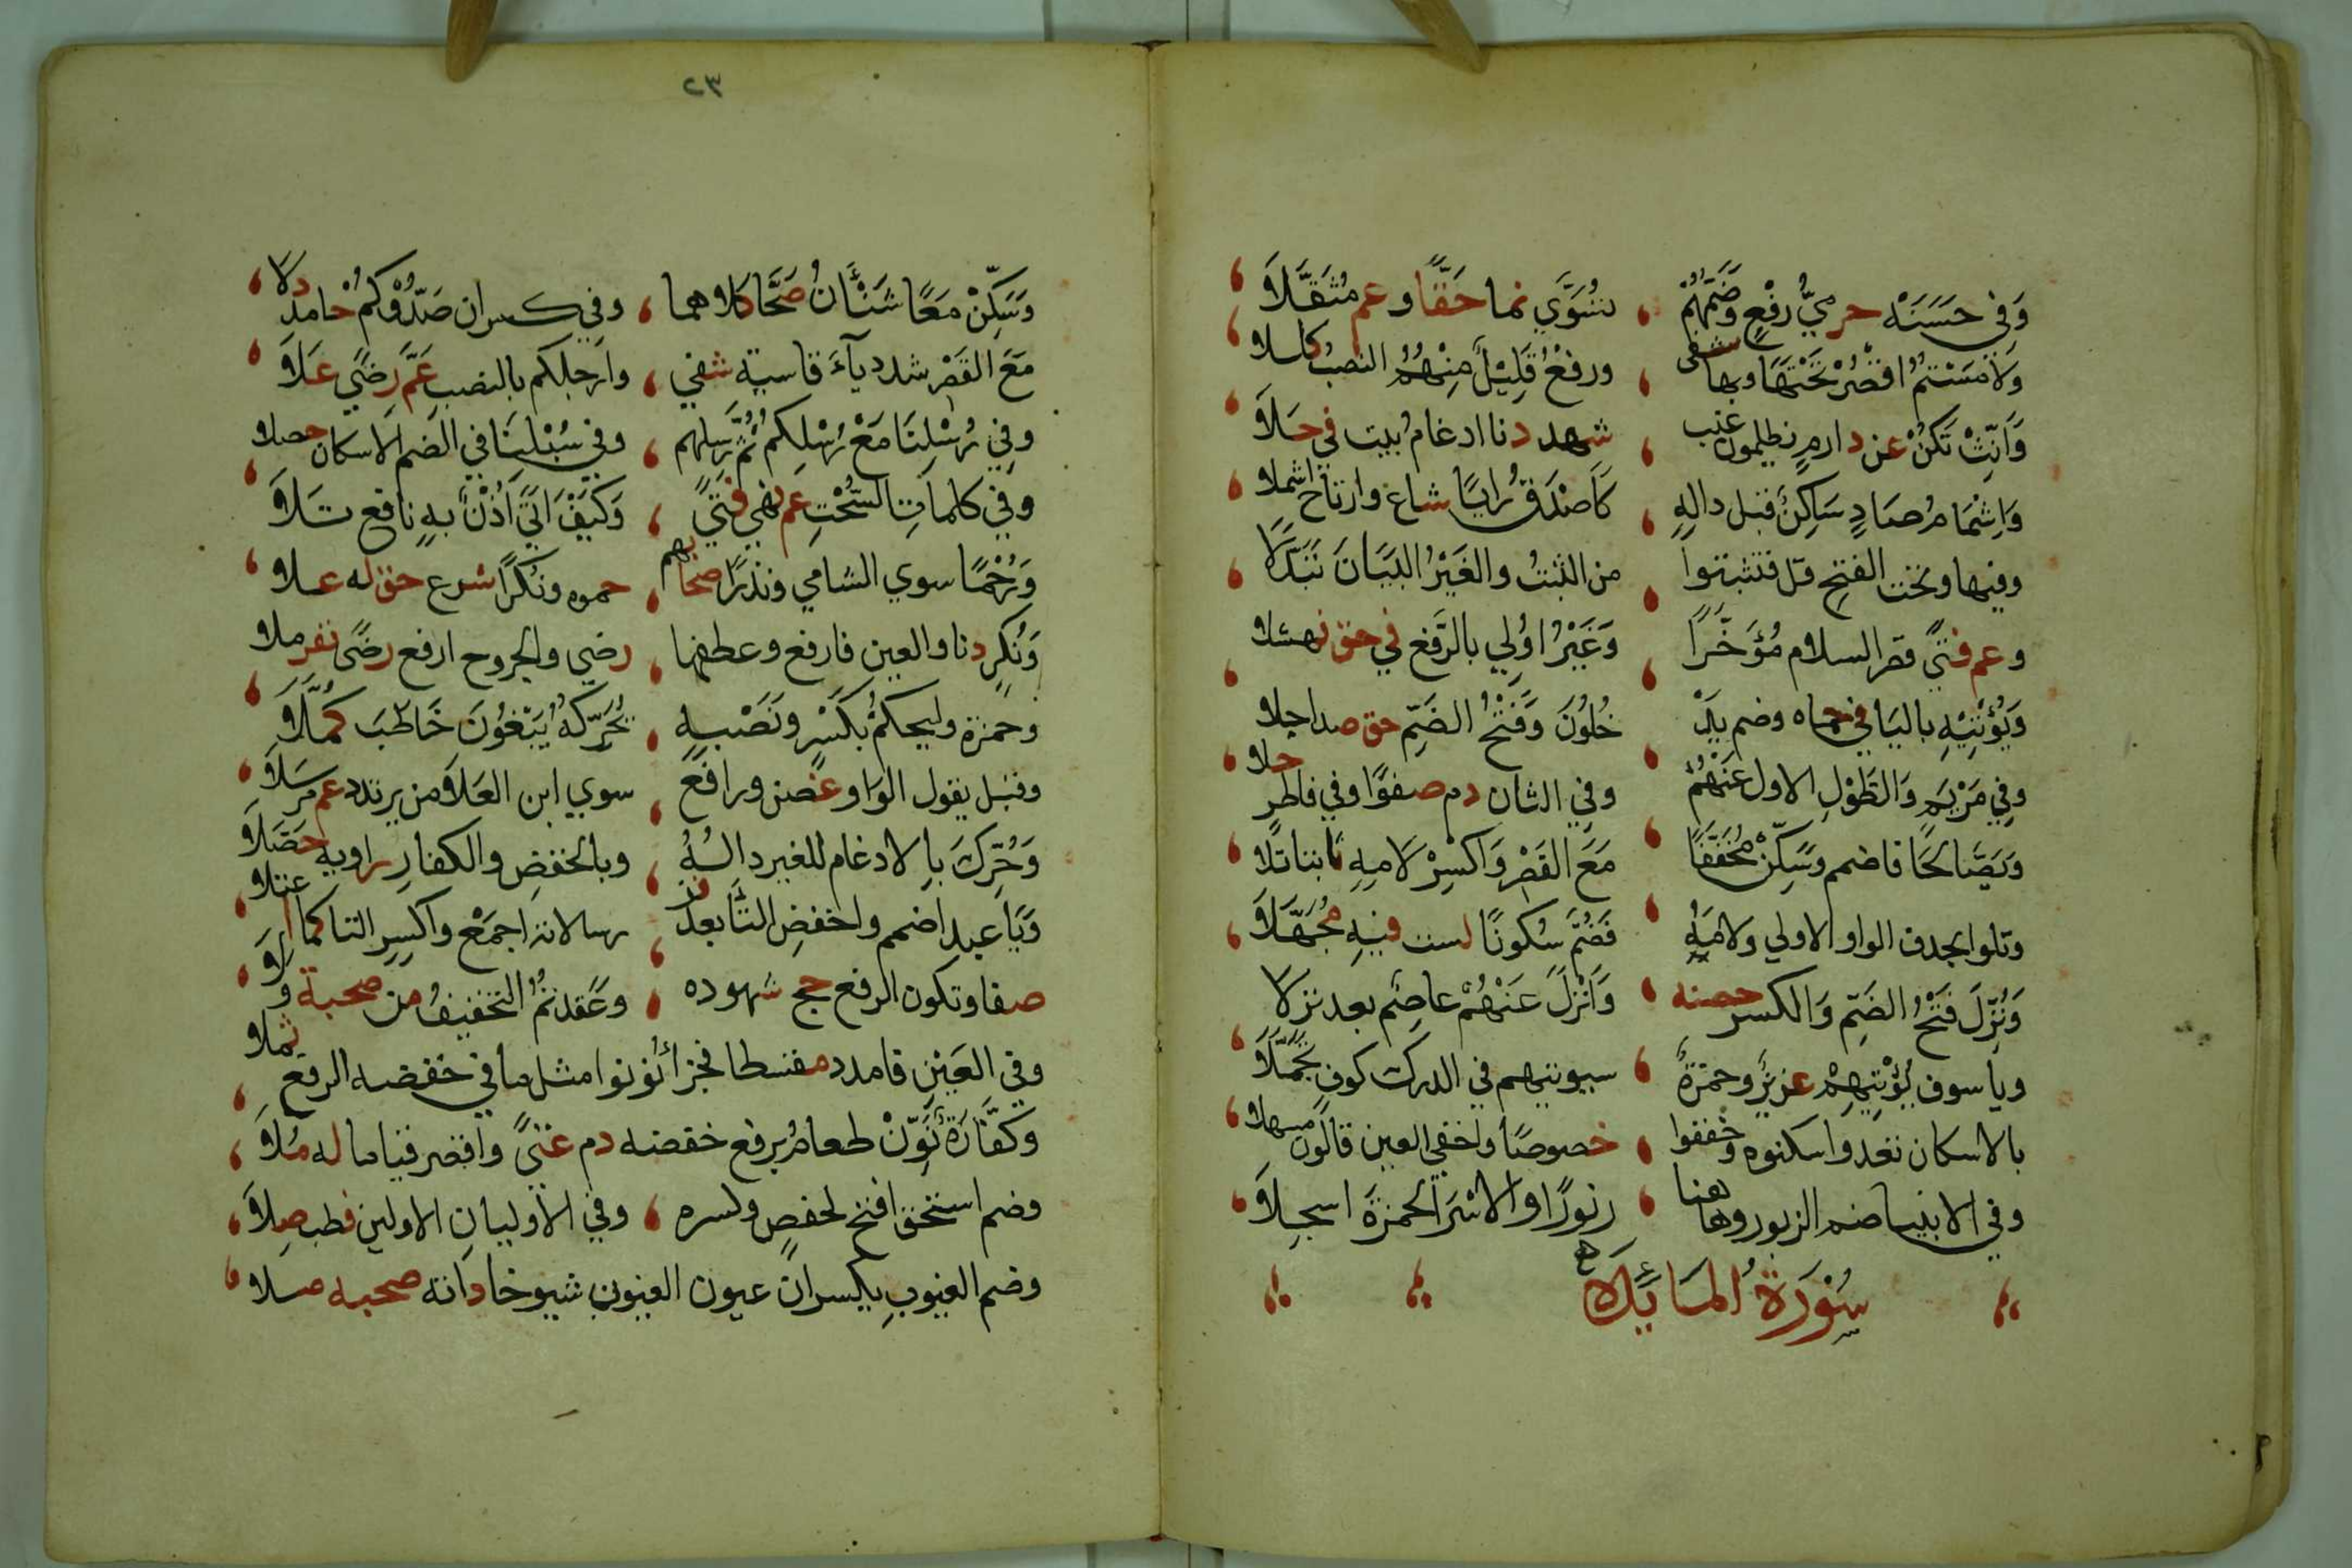 وَفِي حَسَنَهْ حرميُّ رفْعٍ وَضَمُّهُمْ ، تسُوَّي نما حَقًّا وعم مُثَقَّلَا
وَلَامَسْتُمُ اقْصُرْ تَحْتَهَا وبها شفى ، ورفعُ قَلِيْلٌ مِنْهُمُ النصبَ كللا
وَأَنِّثْ تَكُنْ عن دارم يظلمون غيب ، شهد دنا ادغامُ بيت في حَلَا
وَاِشْمَامُ صَادٍ سَاكِنٍ قبل دالهِ ، كَأَصْدَقُ زايًا شاع وارتاح اشملا
وفيها وتحت الفتحِ قل فتثبتوا ، من الثبتُ والغَيْرُ البَيَانَ تَبَدَّلَا
وعم فتيً قصر السلام مُؤَخَّرًا ، وَغَيْرُ اُولِي بالرَّفع في حق نهشلا
وَيُؤْتِيْهِ باليا في حماه وضم يد ، خُلُونَ وَفَتْحُ الضَّمِّ حق صدا حلا
وفِي مَرْيَمٍ وَالطَّوْلِ الاول عَنْهُمُ ، وفي الثان دم صفوًا وفي فاطرٍ حلا
وَيَصَّالحَا فاضمم وسَكِّنْ مُخَفِّفًا ، مَعَ القَصْرِ وَاكْسِرْ لَامهِ ثابتا تلا
وتلوا بحذف الواو الاولي ولامَهُ ، فَضُمَّ سُكونًا لست فيهِ مُجَهَّلَا
وَنُزِّلَ فَتْحُ الضَّمِّ وَالكسر حصنه ، وَأُنْزِلَ عَنْهُمْ عاصم بعد نزلا
ويا سوف يُؤْتِيهِمْ عزيزٌ وحمزةٌ ، سيوتيهم في الدرك كوفٍ تَحَمَّلَا
بالاسكان تعدوا سكنوه وخففوا ، خصوصًا واخفي العين قالون مسهلا
وفي الانبيا ضم الزبور وهاهنا ، زبورًا وفي الاسرَا لحمزةَ اسجلَا
سُوْرَةُ المَائِدَة
٢٣
وَسَكِّنْ مَعًا شَنْأَنُ صَحَّا كلاهما ، وفي كسر ان صَدُّوْكُمْ حامد دلا
مَعَ القَصْرِ شدد يآءَ قاسيةً شفي ، وارجلكم بالنصب عَمَّ رِضًي عَلَا
وفي رُسْلِنَا مَعْ رُسْلِكُمْ ثُمَّ رُسْلهم ، وفي سُبْلِنَا في الضم الاسكان حصلا
وفي كلمات السُّحْتِ عم نهي فتيً ، وَكَيْفَ اَتَي أُذْنٌ بهِ نافع تَلَا
وَرُحْمًا سوي الشامي ونذرًا صحابهم ، حموه ونُكرًا شرع حق له علا
وَنُكْرٍ دنا والعين فارفع وعطفها ، رضي والجروح ارفع رضًي نفر ملا
وحمزة وليحكمْ بكَسْرٍ ونَصْبهِ ، يُحَرِّكهُ يَبْغُوْنَ خَاطَبَ كُمَّلَا
وقبل يقول الوَاو غصن ورافع ، سوي ابن العَلَا من يرتدد عم مرسَلَا
وَحُرِّكَ بالادغام للغير دالُهُ ، وبالخفضِ والكفارِ راويه حَصَّلَا
وَبَا عبد اضمم واخفضِ التَّا بعد فز ، رسالاته اجمعْ واكسرِ التا كما اعتلا
صفا وتكون الرفع حج شهوده ، وعَقدتمُ التخفيفُ من صحبة ولا
وفي العَيْنِ فامدد مقسطا فجزاءُ نونوا مثل ما في خفضه الرفع ثملا
وكَفَّارَةٌ نَوِّنْ طعامُ برفع خفضه دم غنيً واقصر قياما له مُلَا
وضم استحق افتح لحفصٍ وكسره ، وفي الأوليان الاولين فطب صِلَا
وضم الغيوبِ يكسران عيون العيون شيوخا دانه صحبه ملا